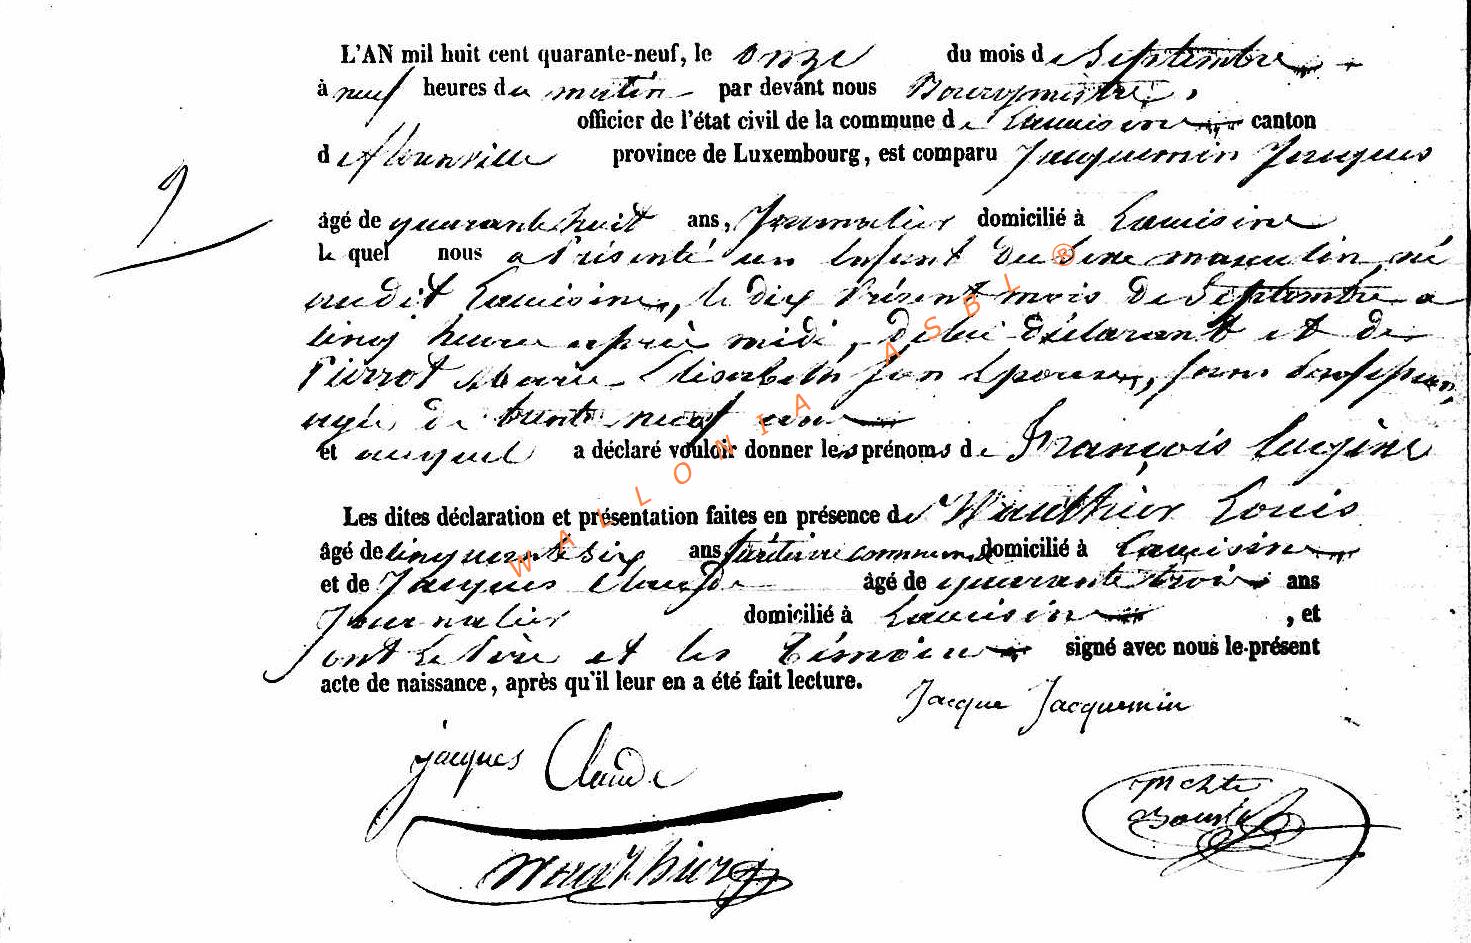 L'AN mil huit cent quarante-neuf, le onze du mois de Septembre
à neuf heures du matin par devant nous Bourgmestre,
officier de l'état civil de la commune de Lacuisine canton
de Florenville province de Luxembourg, est comparu Jacquemin Jacques
9
âgé de quarante huit ans, Journalier domicilié à Lacuisine
le quel nous a Présenté un Enfant du Sexe masculin, né
audit Lacuisine, le dix Présent mois de Septembre a
Cinq heure après midi, de lui Déclarant et de
Pierrot Marie Elisabeth son Epouse, sans
agée de trente neuf ans
et auquel a déclaré vouloir donner les prénoms de François Eugène
Les dites déclaration et présentation faites en présence de Wauthier Louis
âgé de Cinquante six ans domicilié à Lacuisine
et de Jacques Claude âgé de quarante trois ans
Journalier domicilié à Lacuisine , et
ont le Père et les Témoins signé avec nous le présent
acte de naissance, après qu'il leur en a été fait lecture.
Jacque Jacquemin
jacques Claude
Wauthier
WALLONIA ASBL ®